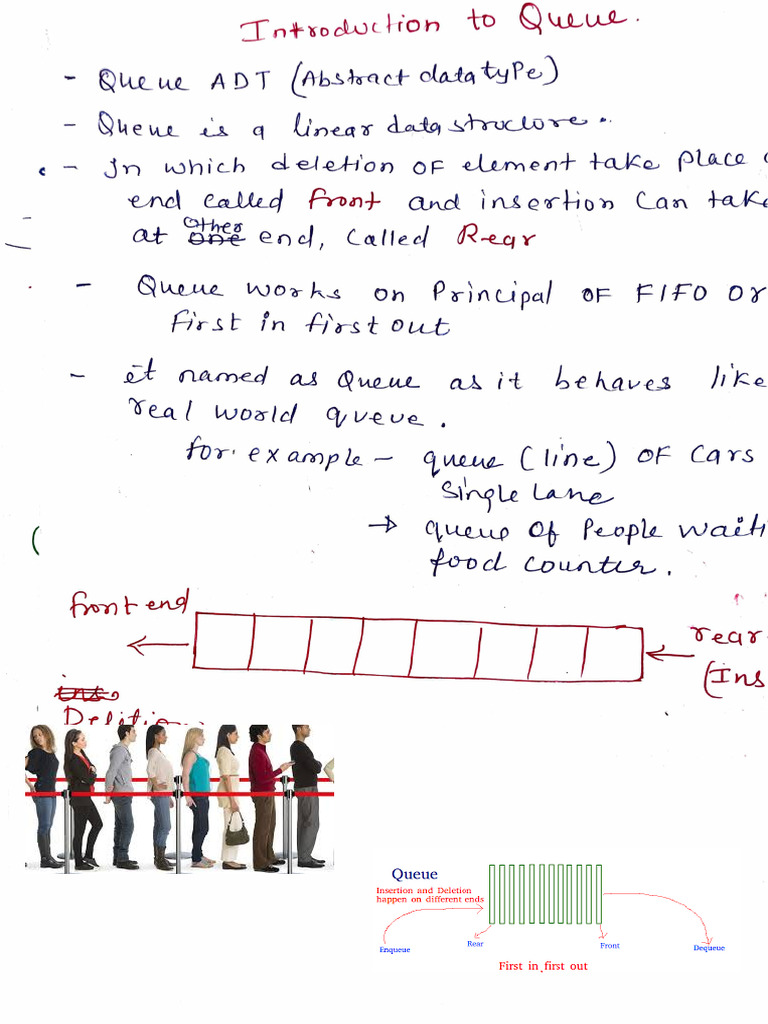 Introduction to Queue.
- Queue ADT (Abstract data type)
- Queue is a linear data structure.
- In which deletion of element take place
end called front and insertion can take
at other one end, called Rear
- Queue works on Principal of FIFO or
first in first out
- it named as Queue as it behaves like
real world queue.
for example - queue (line) of cars
single lane
→ queue of People waiti
food counter.
front end
rear
(Ins
Delition
Queue
Insertion and Deletion
happen on different ends
Enqueue
Rear
Front
Dequeue
First in first out